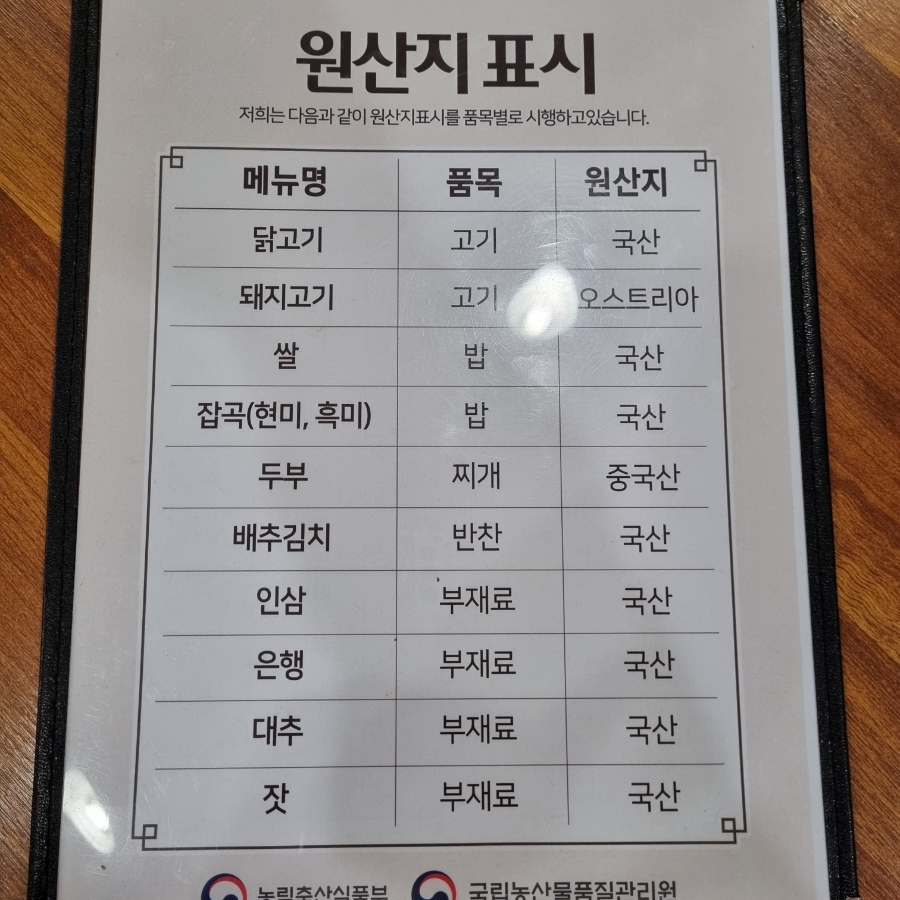 원산지 표시
저희는 다음과 같이 원산지표시를 품목별로 시행하고있습니다.
메뉴명 품목 원산지
닭고기 고기 국산
돼지고기 고기 오스트리아
쌀 밥 국산
잡곡(현미, 흑미) 밥 국산
두부 찌개 중국산
배추김치 반찬 국산
인삼 부재료 국산
은행 부재료 국산
대추 부재료 국산
잣 부재료 국산
농림축산식품부 국립농산물품질관리원